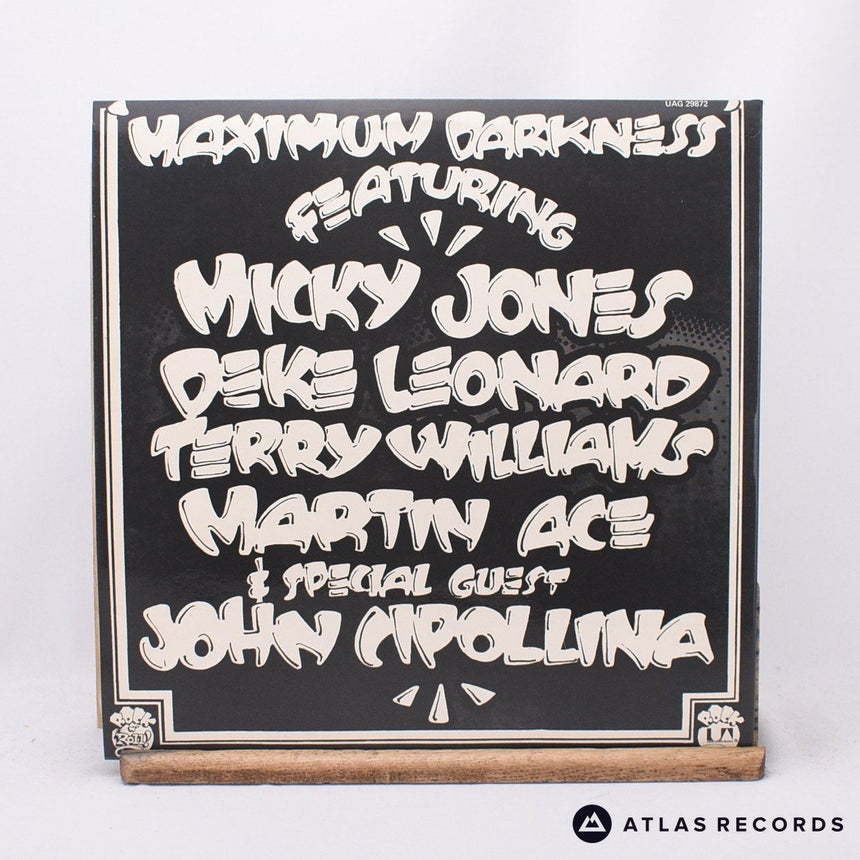 UAG 29872
MAXIMUM DARKNESS
FEATURING
MICKY JONES
DEKE LEONARD
TERRY WILLIAMS
MARTIN ACE
& SPECIAL GUEST
JOHN CIPOLLINA
ROCK
ROLL
ROCK
UA
ATLAS RECORDS